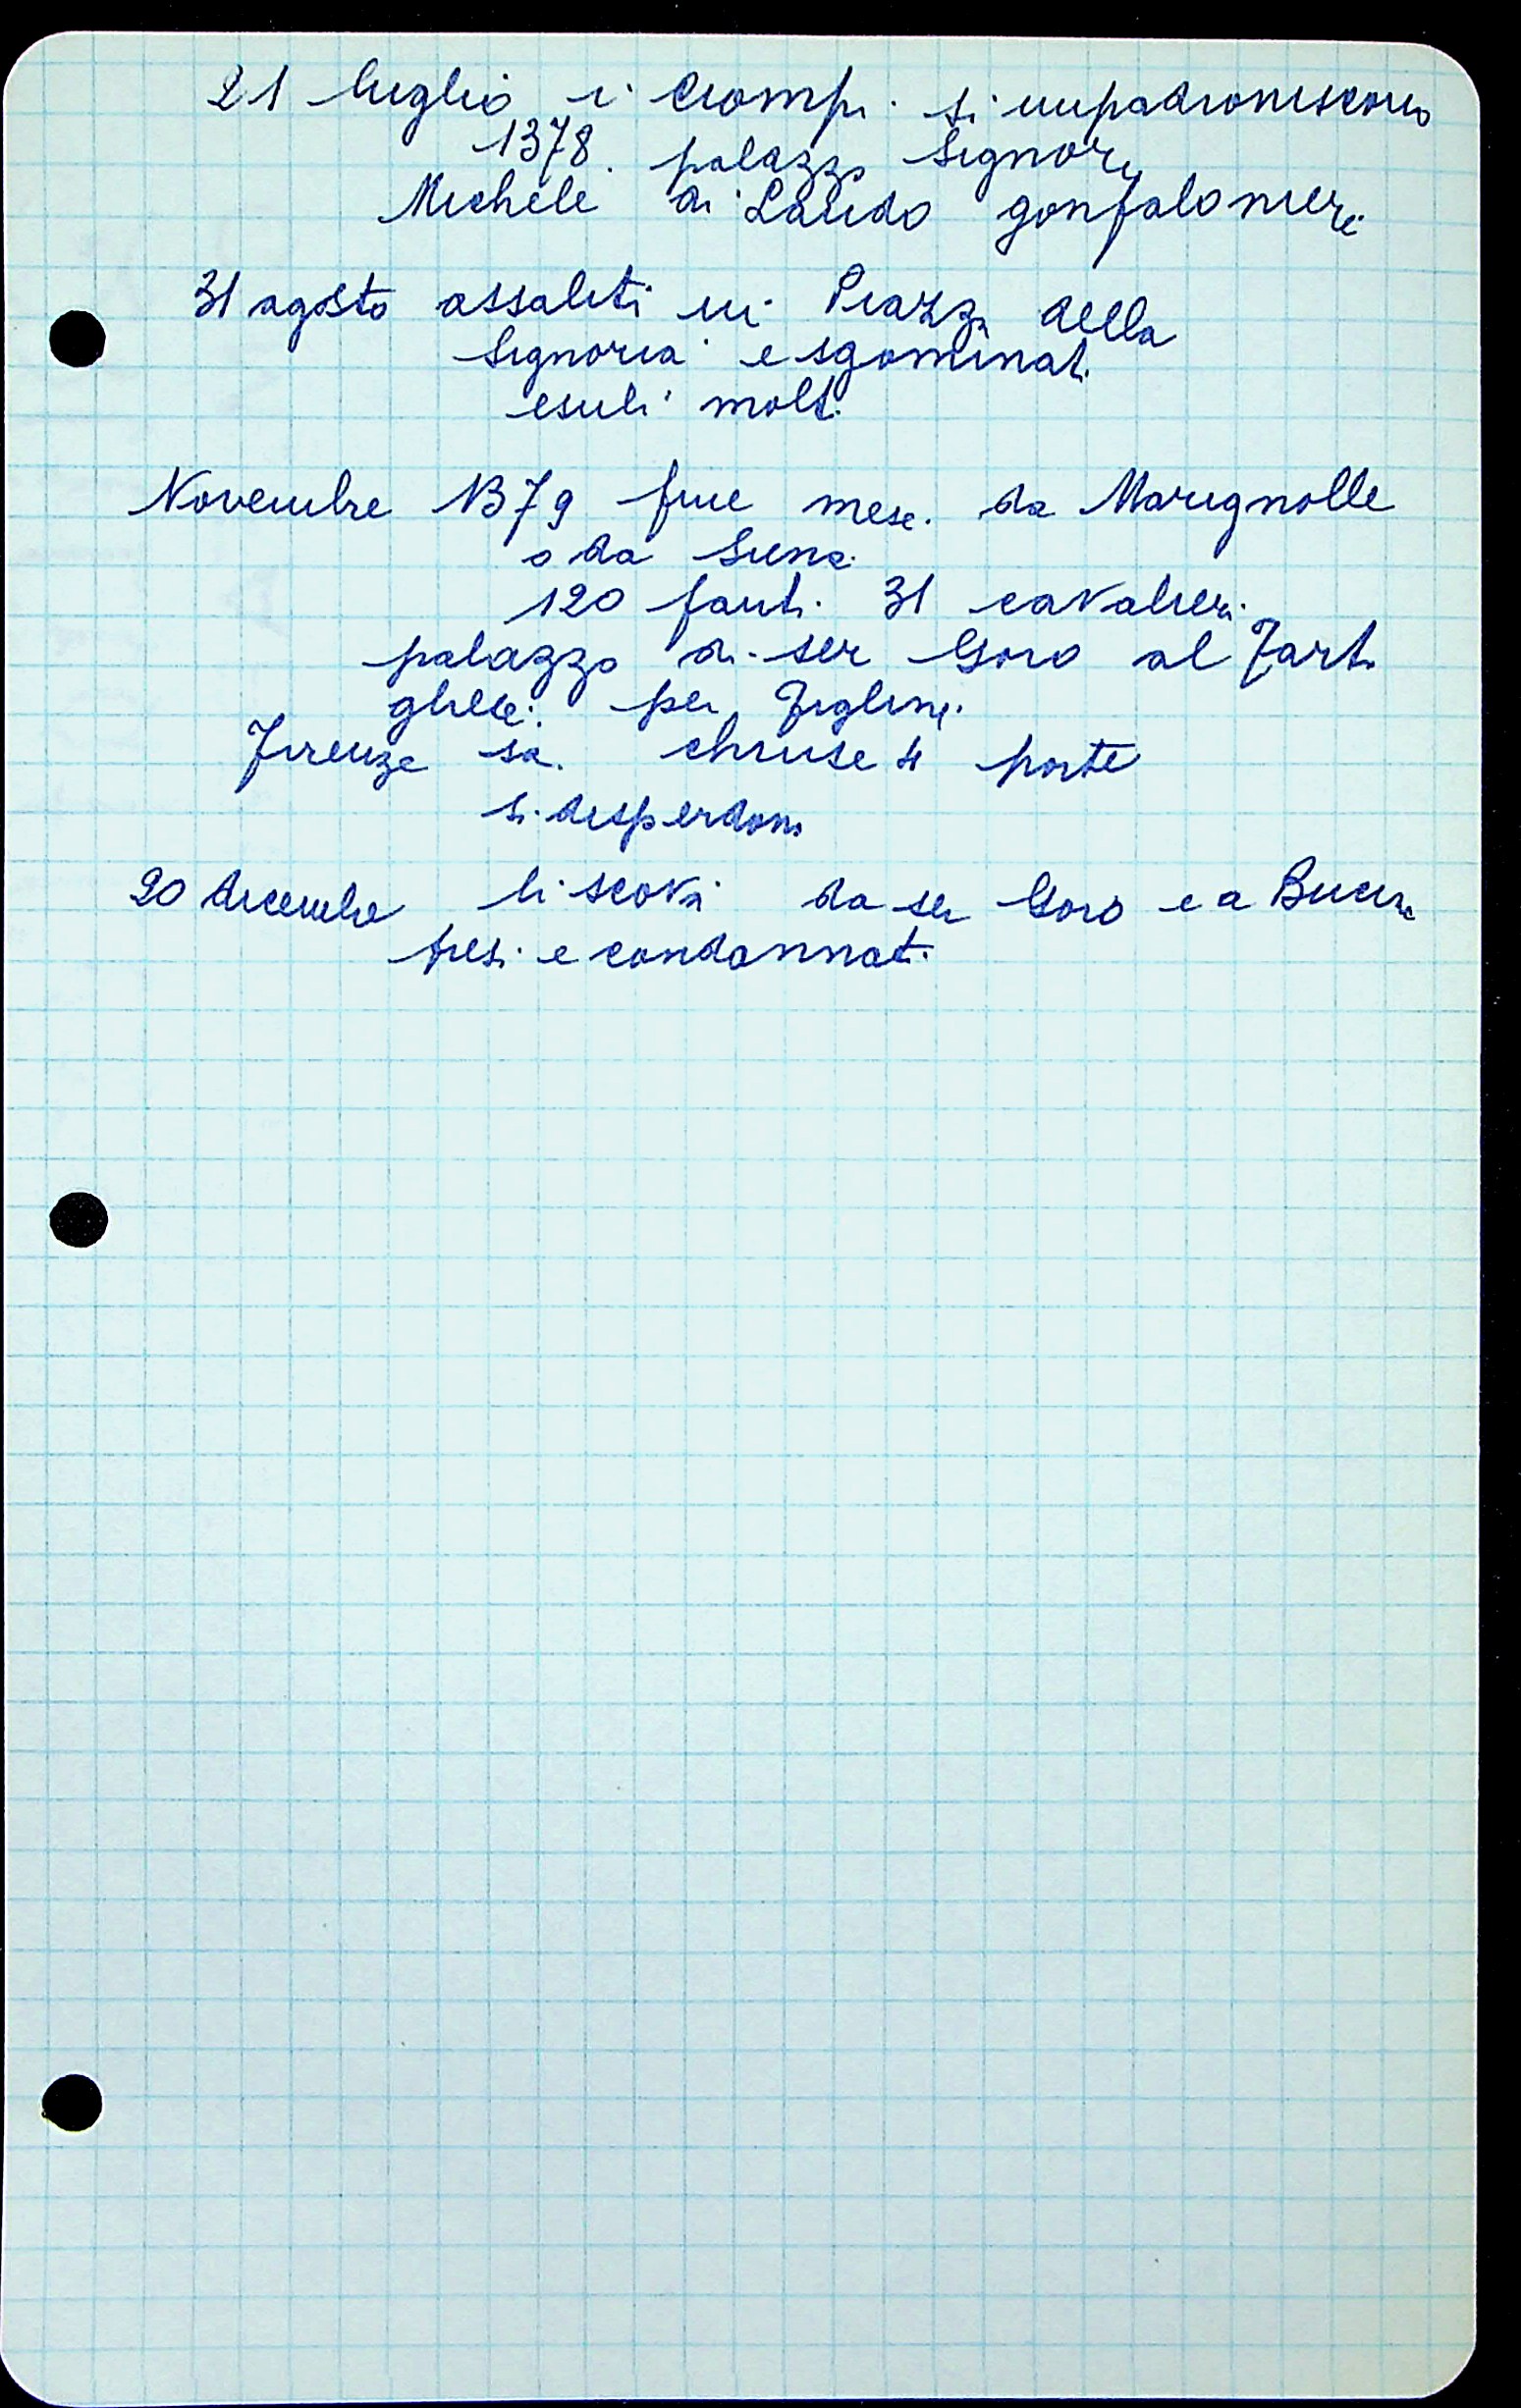 21 luglio i Ciompi si impadroniscono
1378 palazzo Signori
Michele di Lando gonfaloniere
31 agosto assaliti in Piazza della
Signoria e sgominati
esuli molti
Novembre 1379 fine mese da Marignolle
o da Siena
120 fanti 31 cavalieri
palazzo di ser Goro al Tarti
ghese per Figline
Firenze sa chiuse 4 porte
si disperdono
20 dicembre li scova da ser Goro e a Bucine
presi e condannati